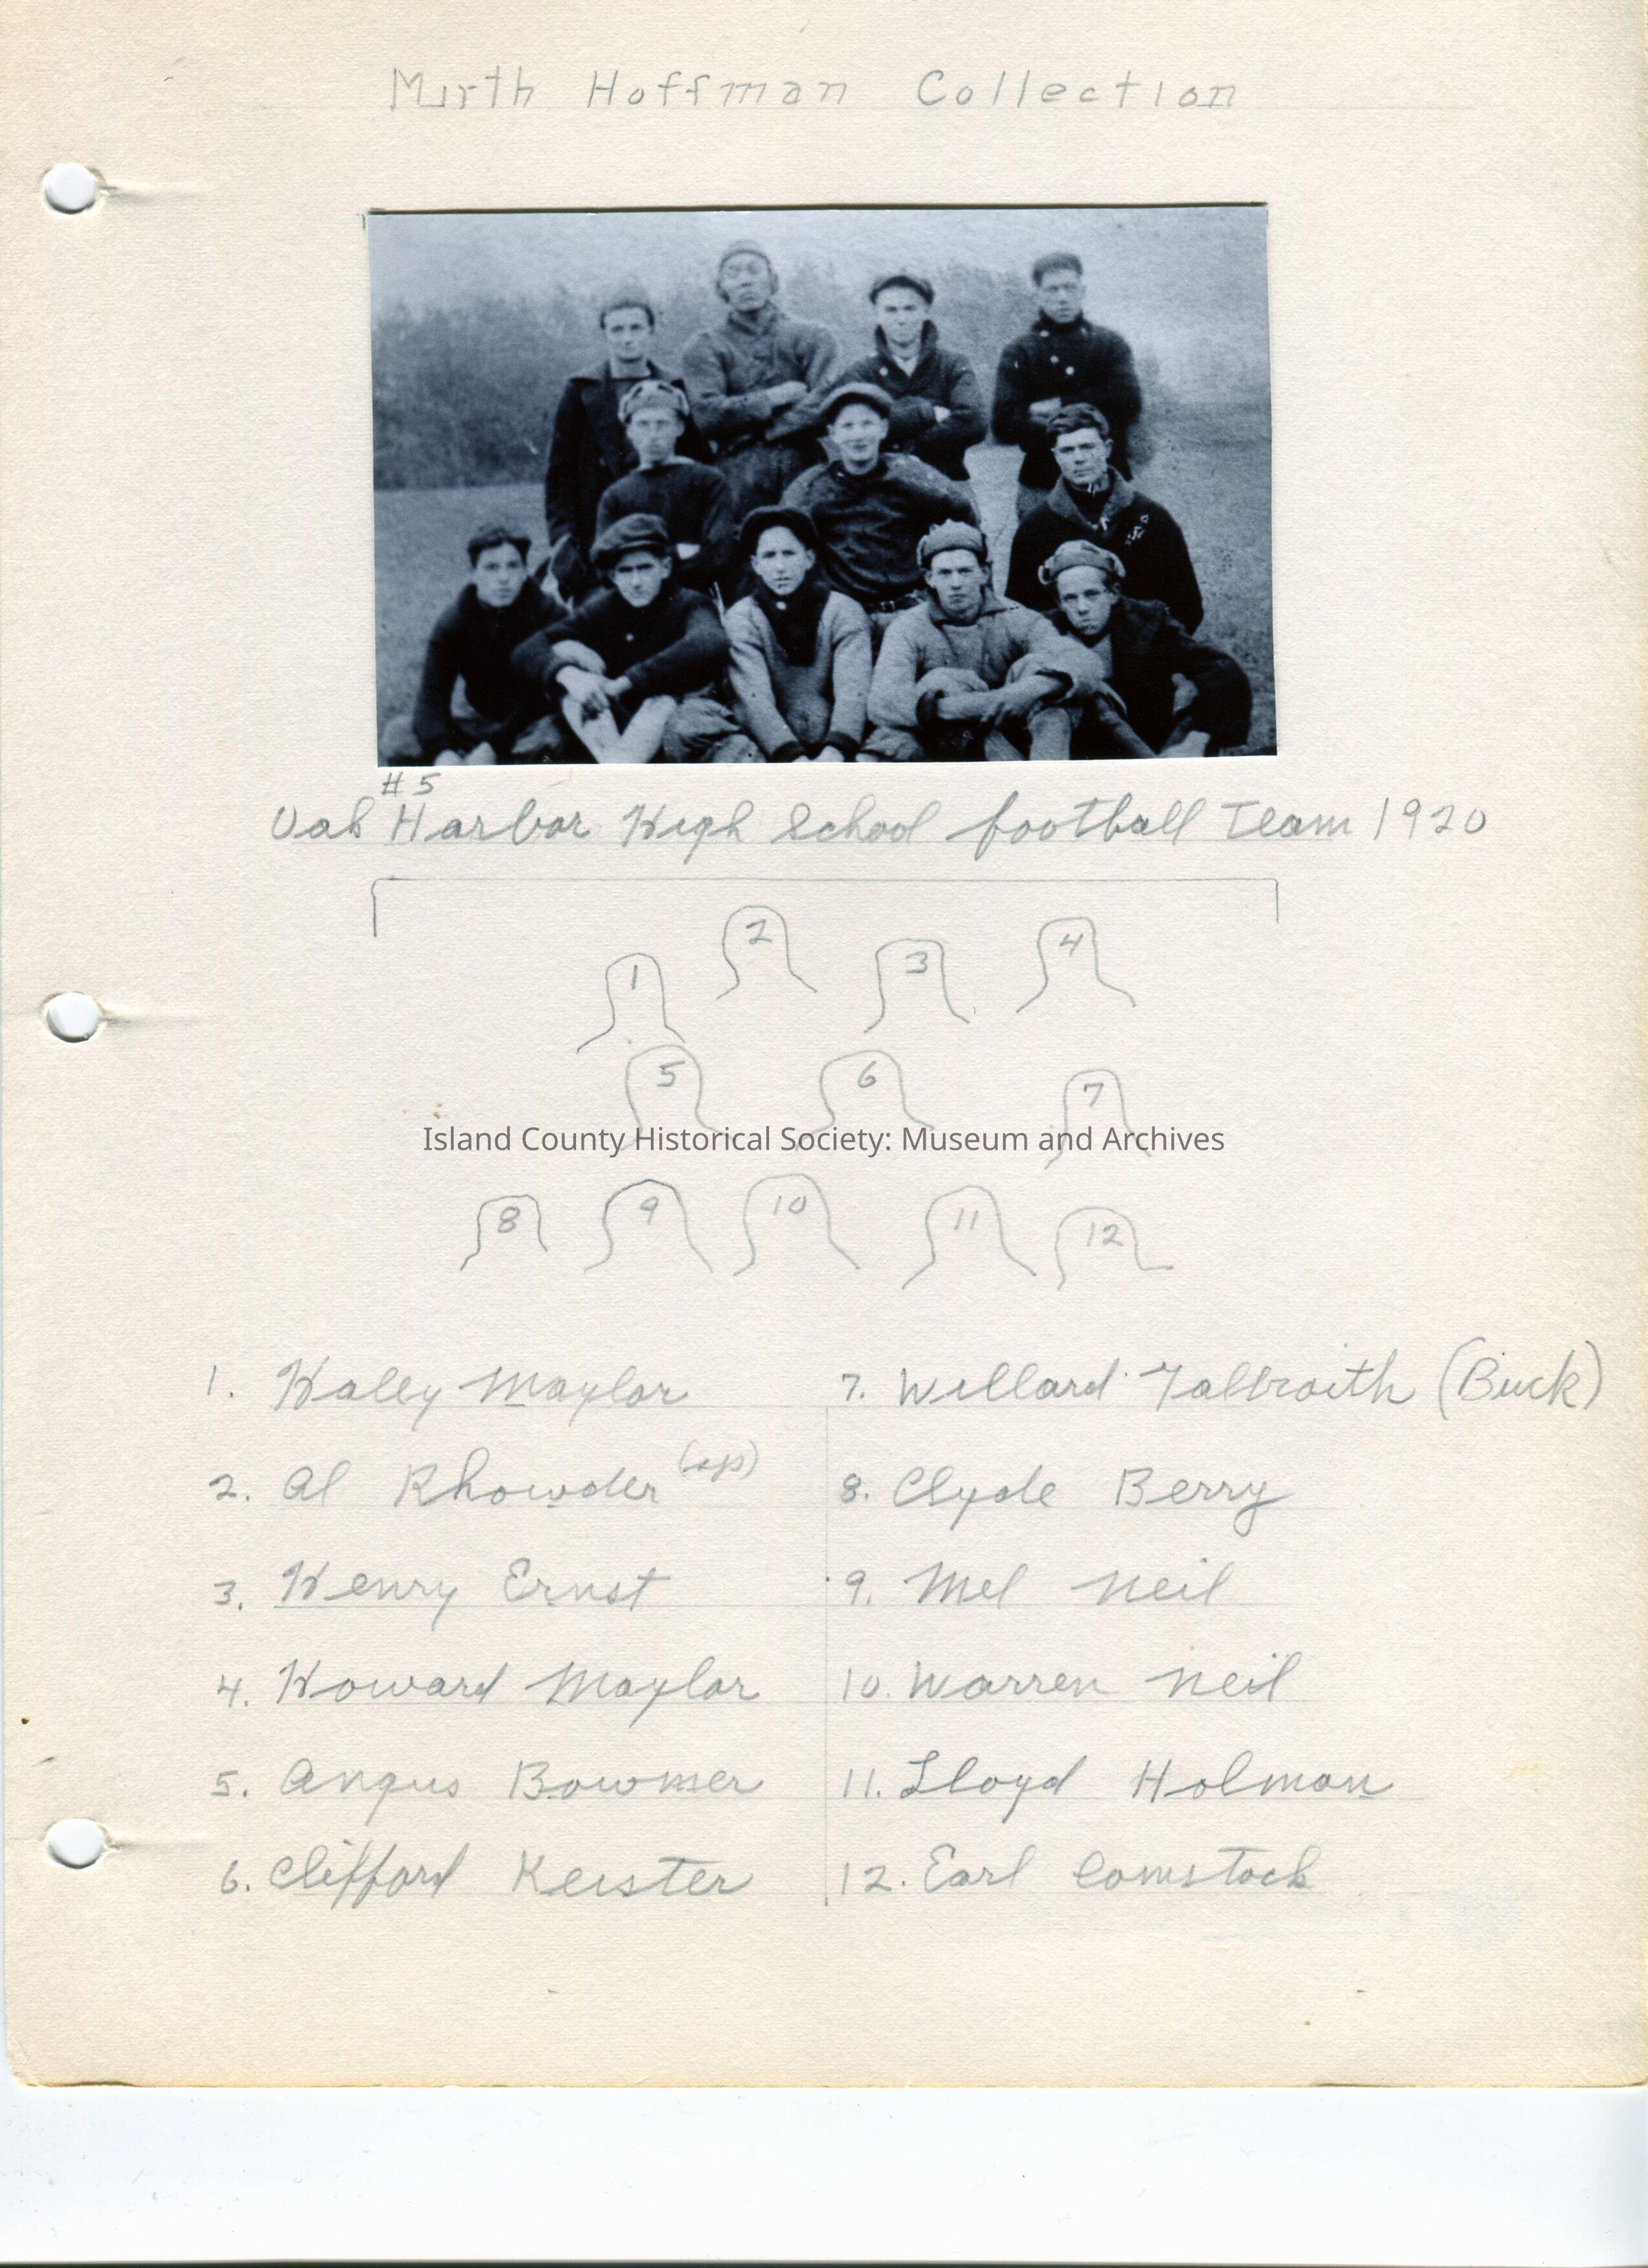 Mirth Hoffman Collection
#5
Oak Harbor High School football Team 1920
1
2
3
4
5
6
7
Island County Historical Society: Museum and Archives
8
9
10
11
12
1. Haley Maylor
2. Al Rhowder (sp)
3. Henry Ernst
4. Howard Maylor
5. Angus Bowmer
6. Clifford Keister
7. Willard Galbraith (Buck)
8. Clyde Berry
9. Mel Neil
10. Warren Neil
11. Lloyd Holman
12. Earl Comstock